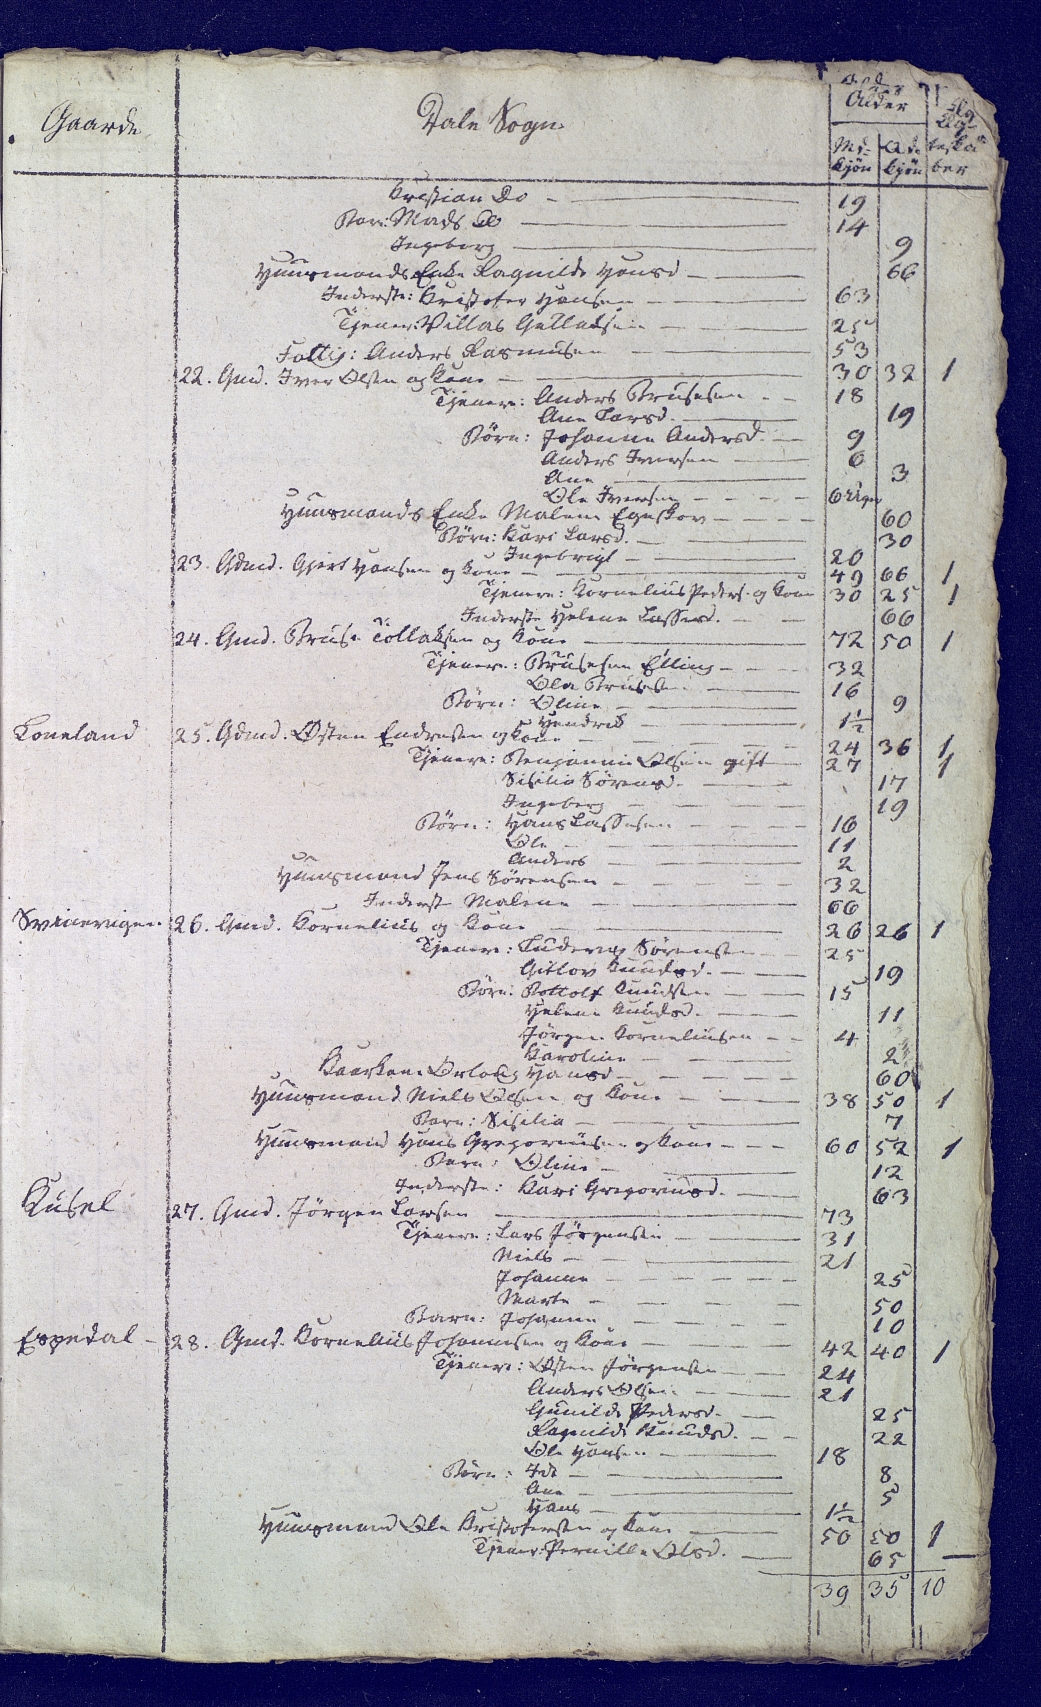 Gaarde
Dale Sogn
Alder
Md. kjøn
kjøn
ber
Kristian Do 19
Barn: Mads Do 14
Ingeborg 9
Huusmands Enke Ragnilde Hansd 66
Inderste: Kristofer Hansen 63
Tjener: Villas Gullaksen 25
Fattig: Anders Rasmusen 53
22. Gmd. Iver Olsen og Kone 30 32 1
Tjenere: Anders Brusesen 18
Ane Larsd. 19
Børn: Johanne Andersd. 9
Anders Iversen 6
Ane 3
Ole Iversen 6 Uger
Huusmands Enke Malene Egeskov 60
Børn: Kari Larsd. 30
Ingebrigt 20
23. Gdmd. Gjert Hansen og Kone 49 66 1
Tjenere: Kornelius Peders. og Kone 30 25 1
Inderste Helene Lassesd. 66
24. Gmd. Bruse Tollaksen og Kone 72 50 1
Tjenere: Brusesen Elling 32
Ola Brusesen 16
Børn: Oline 9
Hendrik 1½
Loneland 25. Gdmd. Østen Endresen og Kone 24 36 1
Tjenere: Benjamin Olsen gift 27 1
Sisilia Sørensd. 17
Ingeborg 19
Børn: Hans Lassesen 16
Ole 11
Anders 2
Huusmand Jens Sørensen 32
Inderst Malene 66
Svinevigen 26. Gmd. Kornelius og Kone 26 26 1
Tjenere: Ludevig Sørensen 25
Gitlov Knudsd. 19
Børn: Bottolf Knudsen 15
Helene Knudsd. 11
Jørgen Korneliusen 4
Karoline 2
Kaarkone Orlaug Hansd 60
Huusmand Niels Olsen og Kone 38 50 1
Barn: Sisilia 7
Huusmand Hans Gregoriusen og Kone 60 52 1
Barn: Oline 12
Inderste: Kari Gregoriusd. 63
Kusel 27. Gmd. Jørgen Larsen 73
Tjenere: Lars Jørgensen 31
Niels 21
Johanne 25
Marte 50
Barn: Johanne 10
Espedal 28. Gmd. Kornelius Johannesen og Kone 42 40 1
Tjenere: Østen Jørgensen 24
Anders Olsen 21
Gunilde Pedersd. 25
Ragnilde Knudsd. 22
Ole Hansen 18
Børn: Ide 8
Ane 5
Hans 1½
Huusmand Ole Kristofersen og Kone 50 50 1
Tjener: Pernille Olsd. 65
39 35 10